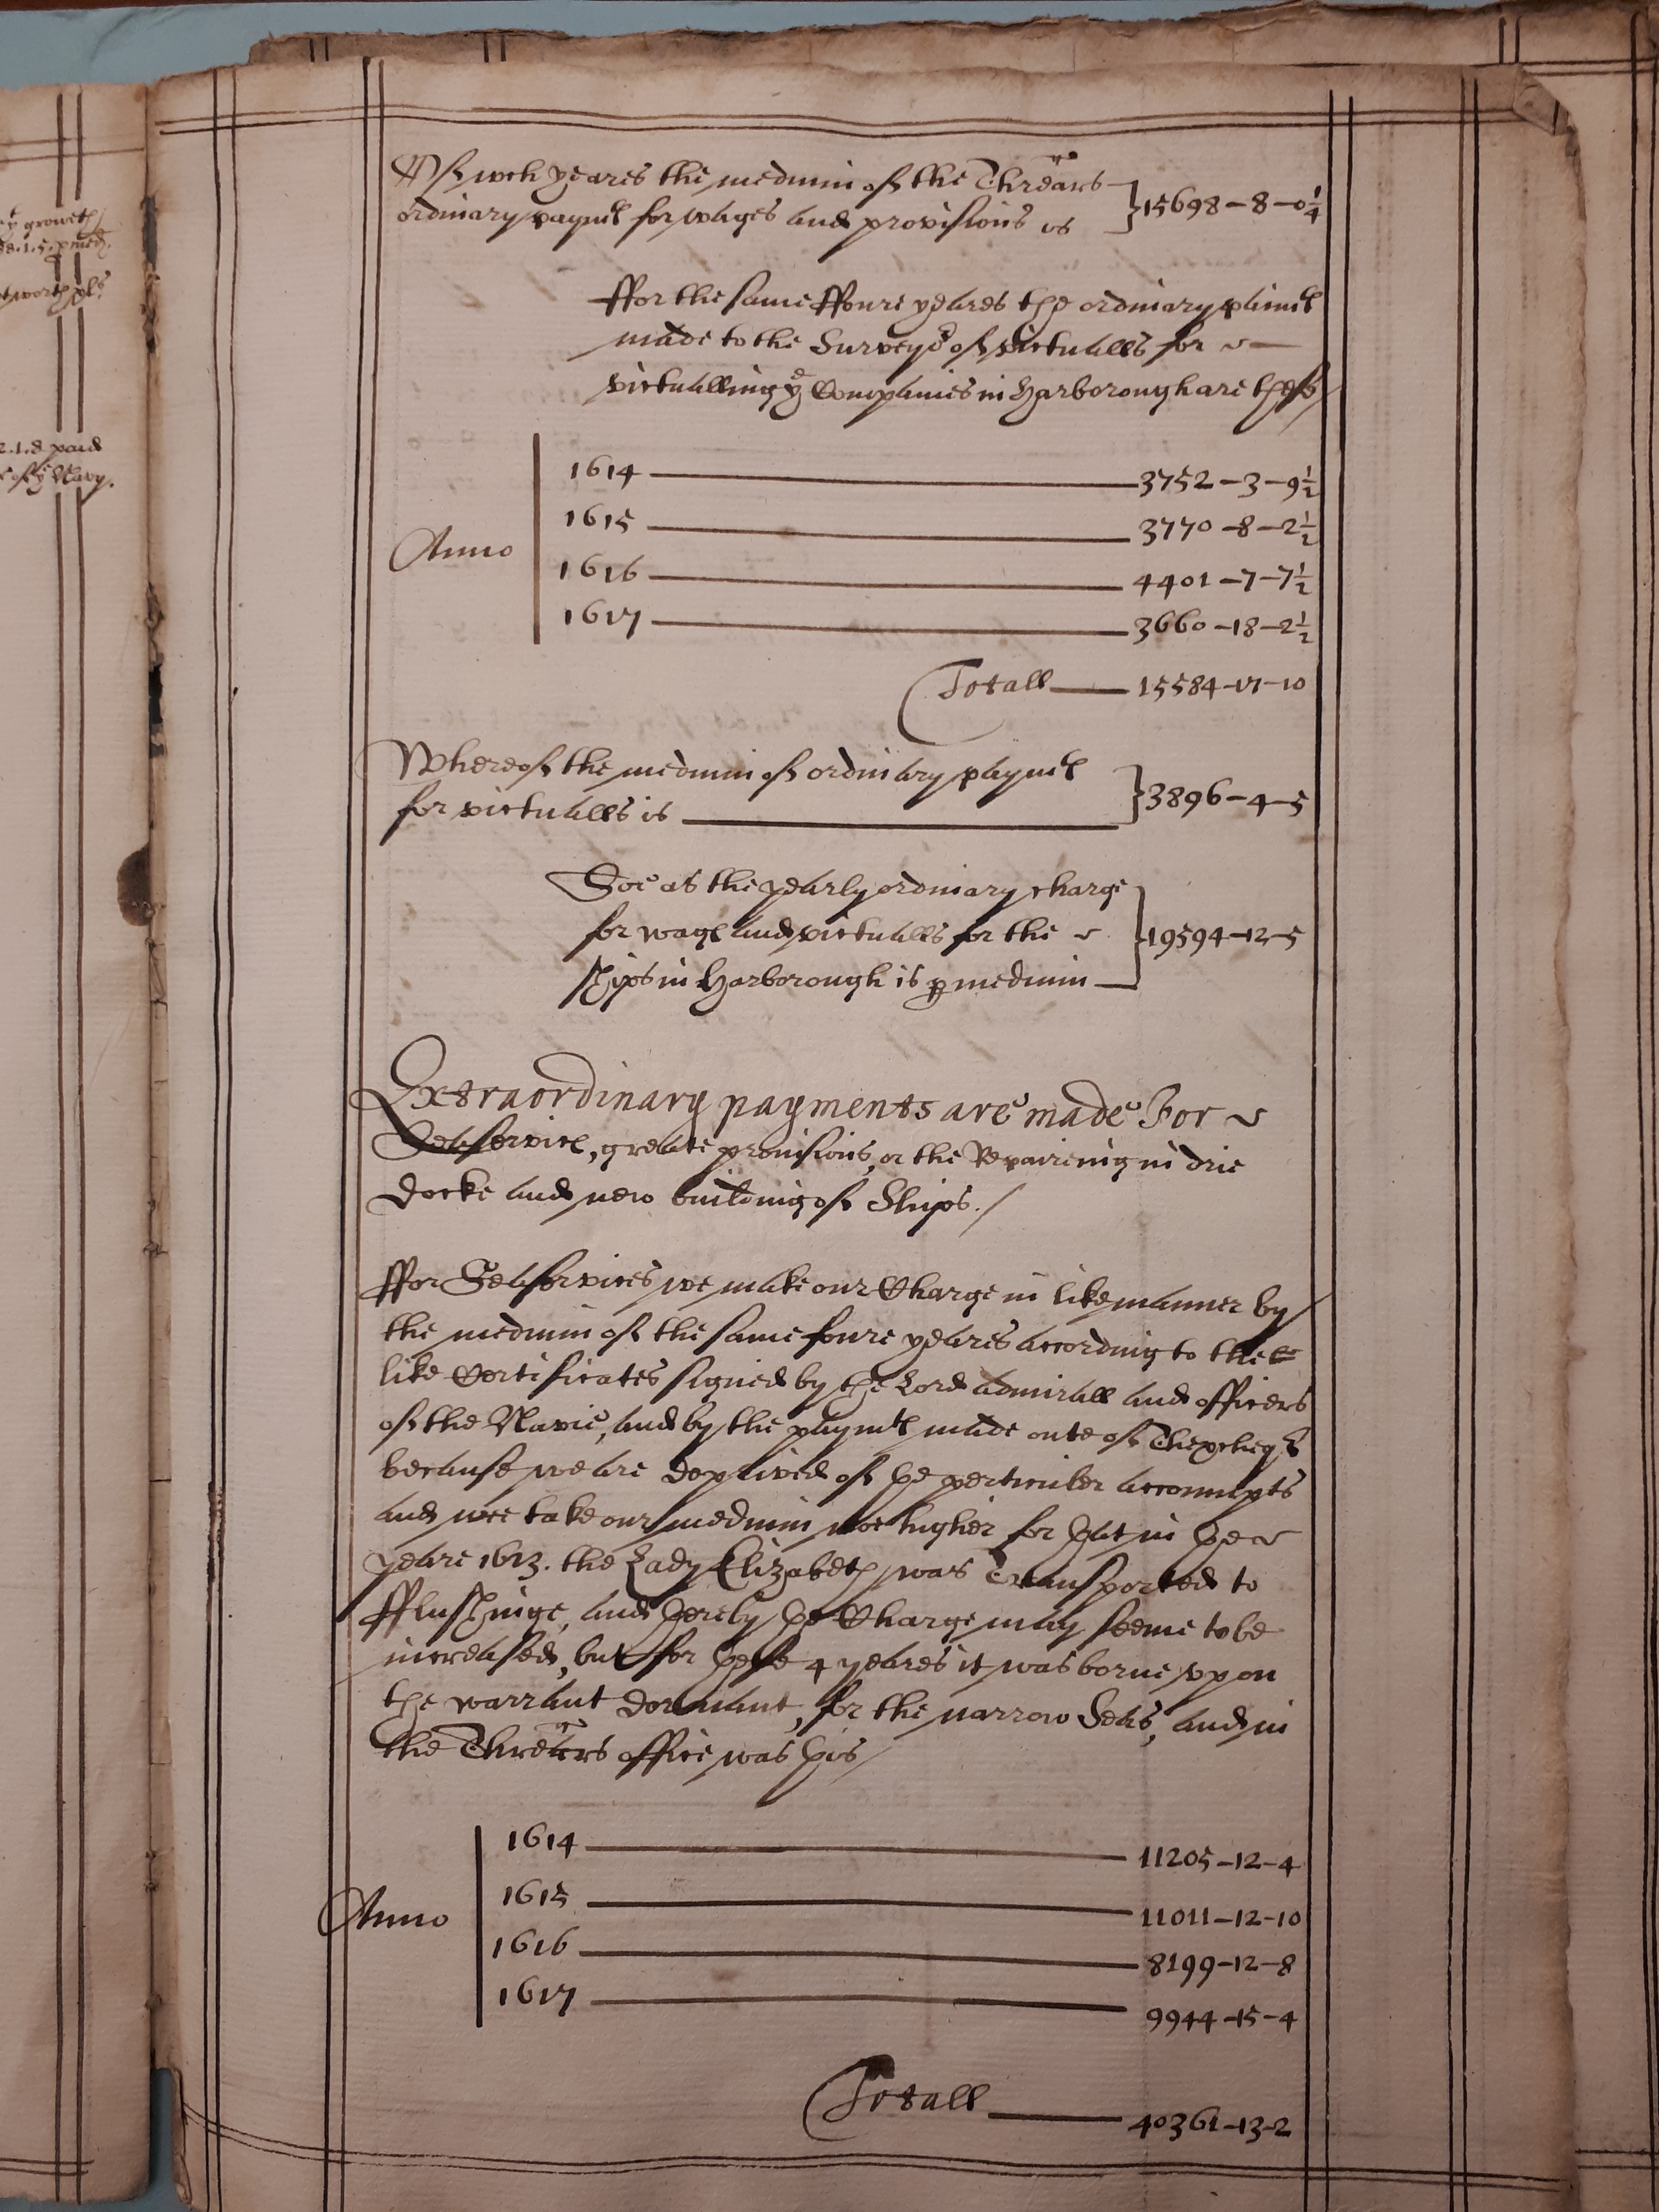 y^t growth
88.1.5. pmed.
tworth pl^s
2.1.8 paid
r of y^e Navy.
Of w^ch yeares the medium of the Threãrs
ordinary paym^ts for wages and provisions is } 15698-8-0¼
ffor the same ffoure yeares the ordinary paim^ts
made to the Survey^or of victualls for
victualling y^e Companies in Harborough are these/
Anno
1614 — 3752-3-9½
1615 — 3770-8-2½
1616 — 4401-7-7½
1617 — 3660-18-2½
Totall — 15584-17-10
Whereof the medium of ordinary paym^ts
for victualls is — } 3896-4-5
Soe as the yearly ordinary charge
for wages and victualls for the } 19594-12-5
ships in Harborough is p medium —
Extraordinary payments are made For
Seaservice, greate provisions, or the Repaireing in drie
docke and new building of Ships./
ffor Seaservices we make our Charge in like manner by
the medium of the same foure yeares according to the
like Certificates signed by the Lord Admirall and officers
of the Navie, and by the paym^ts made oute of Thexcheq^r
because we are deprived of þe perticuler accoumpts
and wee take our medium noe higher for þat in þe
yeare 1613. the Lady Elizabeth was Transported to
fflushinge, and þereby þe Charge may seeme to be
increased, but for þese 4 yeares it was borne vpon
the warrant dormant, for the narrow Seas, and in
the Threãrs office was þis/
Anno
1614 — 11205-12-4
1615 — 11011-12-10
1616 — 8199-12-8
1617 — 9944-15-4
Totall — 40361-13-2